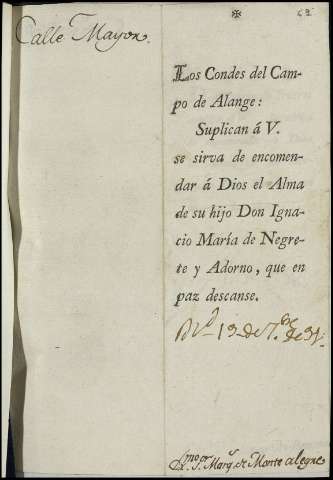 Calle Mayor.
✠
Los Condes del Cam-
po de Alange:
Suplican á V.
se sirva de encomen-
dar á Dios el Alma
de su hijo Don Igna-
cio María de Negre-
te y Adorno, que en
paz descanse.
19 de 7.bre de 91.
Sr. Marq.s de Monte alegre